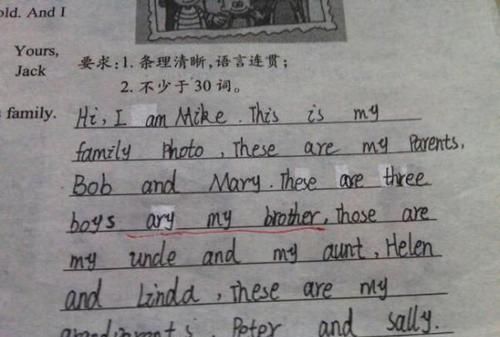 old. And I
Yours,
Jack
要求:1. 条理清晰,语言连贯;
2. 不少于30词。
family.
Hi, I am Mike. This is my
family Photo, These are my Parents,
Bob and Mary. These are three
boys ary my brother, Those are
my uncle and my aunt, Helen
and Linda, These are my
grandparents, Peter and sally.